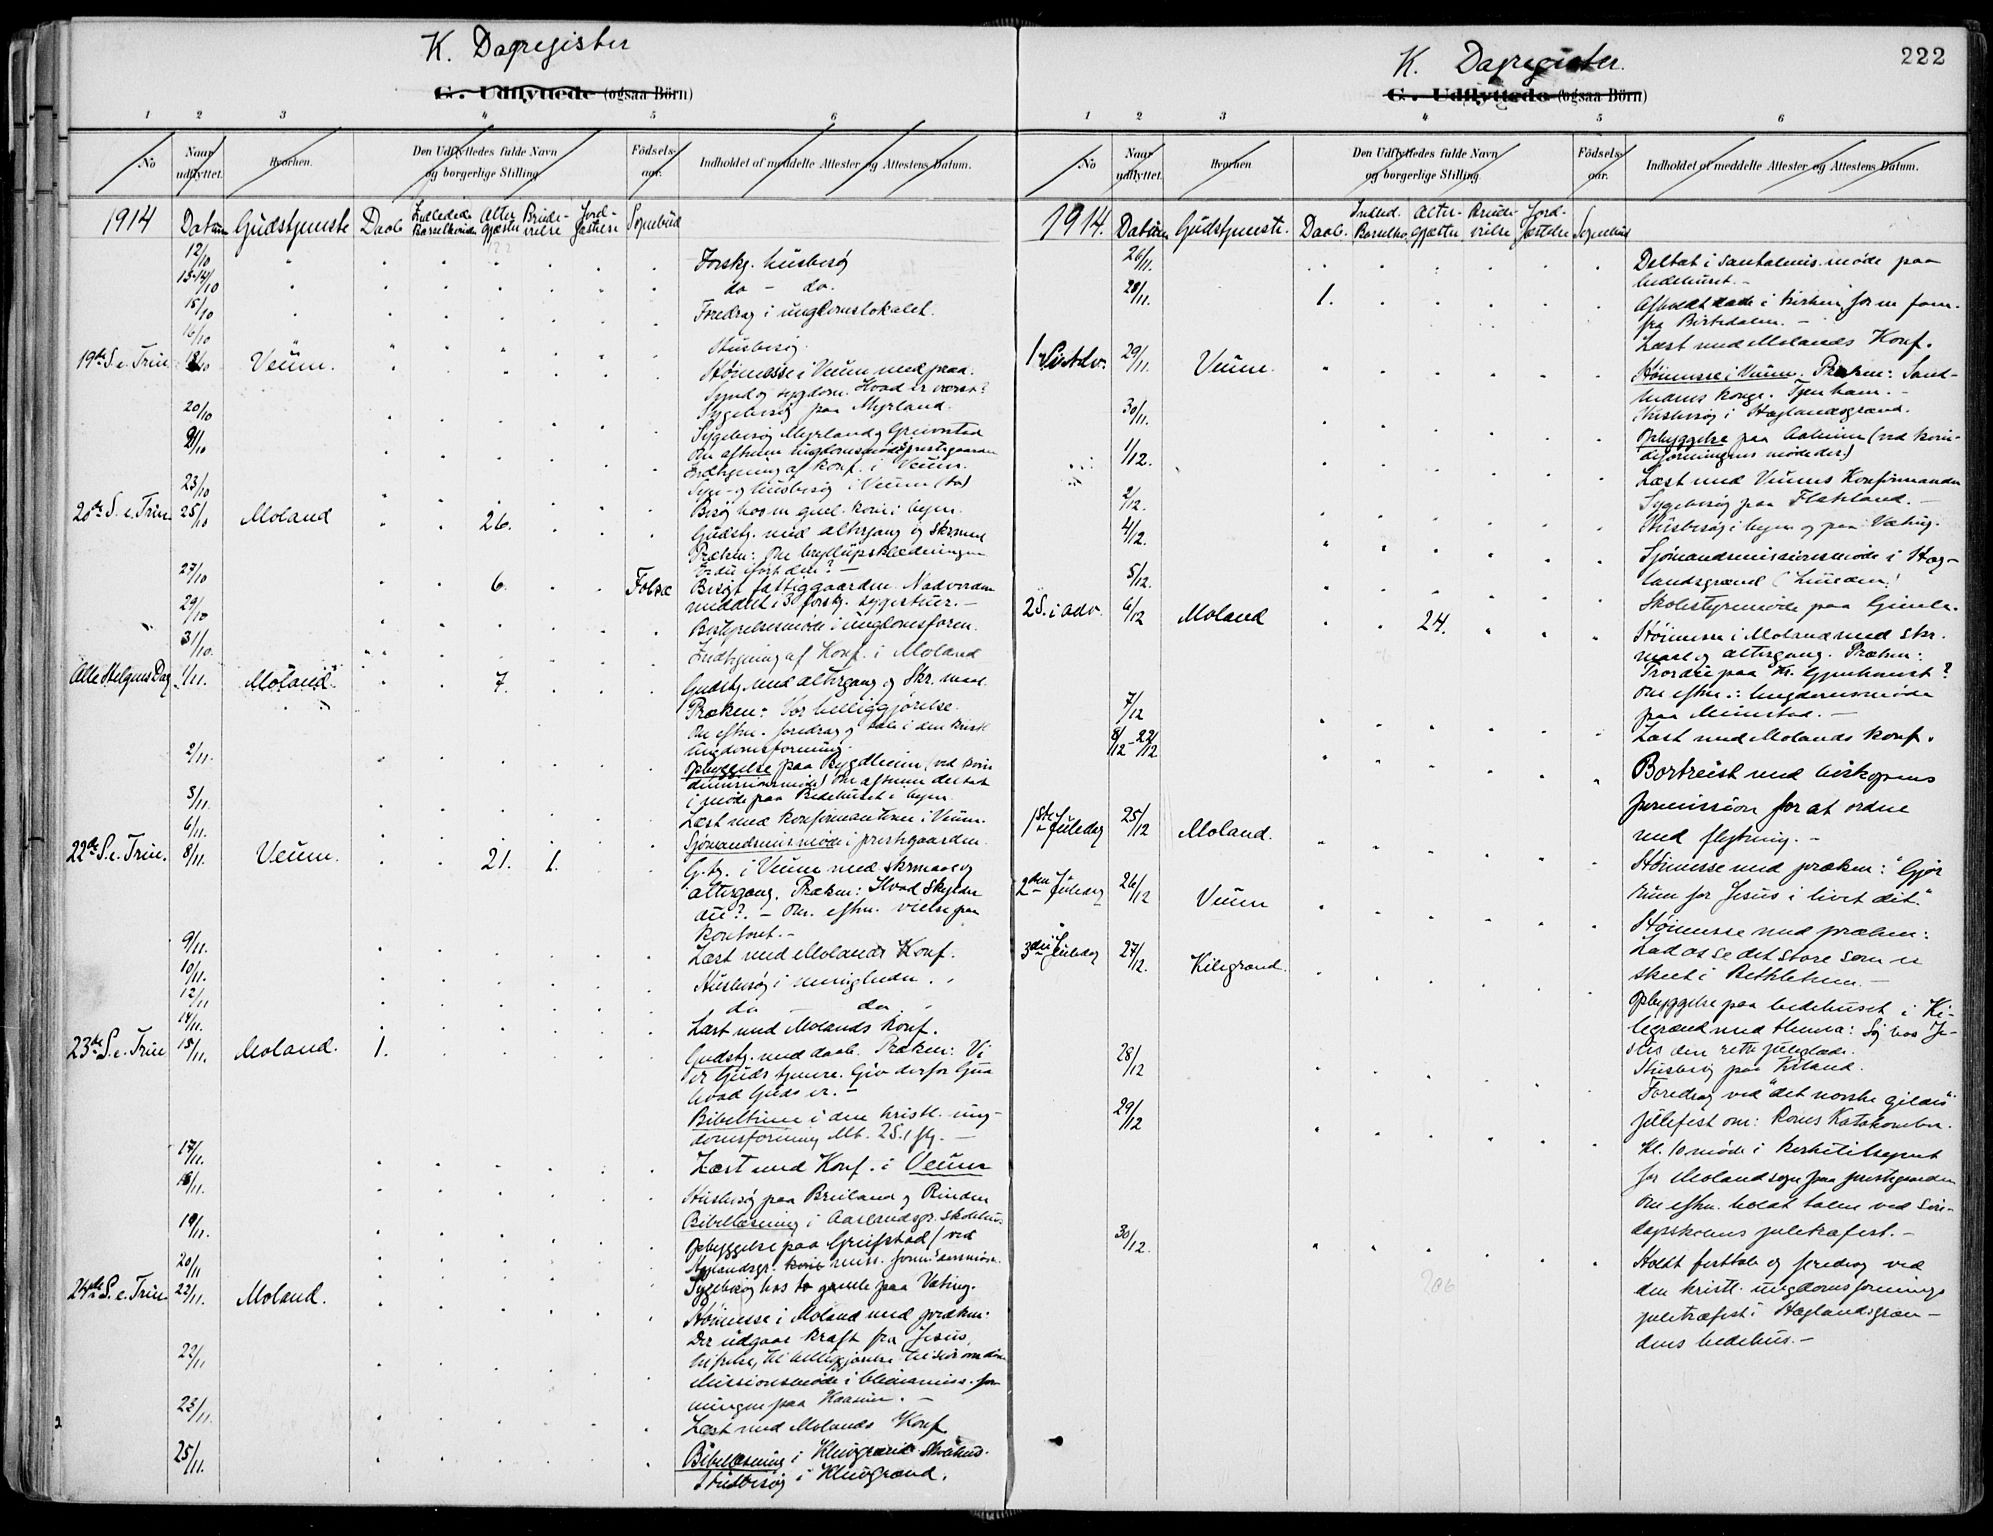 K. Dagregister
G. Udflyttede (ogsaa Börn)
1 2 3 4 5 6
No
Naar udflyttet.
Hvorhen.
Den Udflyttedes fulde Navn og borgerlige Stilling
Födsels-aar.
Indholdet af meddelte Attester og Attestens Datum.
1914 Datum Gudstjeneste Daab Indledede Barselkvinder Alter gjæster Brude-vielse Jord-fæstelse Sognebud
12/10 Forskj. husbesøg
13-14/10 do - do.
15/10 Foredrag i ungdomslokalet.
16/10 Husbesøg.
19de S. e. Trin. 18/10 Veum. Höimesse i Veum med præd.
Synd og sygdom. Hvad er værst?
20/10 Sygebesøg paa Myrland.
21/10 Sygebesøg Myrland og Greivstad
Om aftenen ungdomsmøde i prestegaarden
Indtegning af Konf. i Veum.
23/10 Syge- og husbesøg i Veum (to)
20de S. e. Trin. 25/10 Moland 26.
Gudstj. med altergang og skrmaal
Præken: Om bryllupsklædningen
Er du iført den? -
27/10 6. Besøgt fattiggaarden. Nadveren
meddelt i 3 forskj. sygestuer. -
29/10 Bestyrelsesmøde i ungdomsforen.
31/10. Indtegning af Konf. i Moland
Alle Helgens Dag 1/11. Moland. 7. Gudstj. med altergang og Skr. maal.
Præken: Vor helliggjørelse.
Om eftm. foredrag og tale i den kristl.
Ungdomsforening.
2/11. Opbyggelse paa Bygdheim (ved kvin
Om aftenen deltat
i møde paa Bedehuset i byen.
5/11. Læst med konfirmantene i Veum.
6/11. Sjömandsmismöde i prestegaarden.
22de S. e. Trin. 8/11. Veum. 21. 1. G.tj. i Veum med skrmaal og
altergang. Præken: Hvad skylder
du? - Om. eftm. vielse paa
kontoret. -
9/11. Læst med Molands Konf.
10/11. Husbesøg i menigheden.
12/11 do do
14/11. Læst med Molands Konf.
23de S. e. Trin 15/11. Moland. 1. Gudstj. med daab. Præken: Vi
er Guds tjenere. Giv derfor Gud
hvad Guds er. -
Bibeltime i den kristl. ung-
domsforening Mt. 25.1 flg. -
17/11. Læst med Konf. i Veum
18/11. Husbesøg paa Breiland og Rinden
Bibellæsning i Aaslandsgr. skolehus.
19/11. Opbyggelse paa Greifstad (ved
20/11 Sygebesøg hos to gamle paa Væting.
24de S. e. Trin. 22/11. Moland. Höimesse i Moland med præken:
Der udgaar kraft fra Jesus
22/11 Missionsmöde i Kinamiss. for
ningen paa
23/11. Læst med Molands Konf.
25/11. Bibellæsning i Kleivgrænds Skolehus.
Husbesøg i Kleivgrænd.
222
K. Dagregister.
G. Udflyttede (ogsaa Börn)
1 2 3 4 5 6
No
Naar udflyttet.
Hvorhen
Den Udflyttedes fulde Navn og borgerlige Stilling.
Födsels-aar.
Indholdet af meddelte Attester og Attestens Datum.
1914. Datum Gudstjeneste. Daab. Indled. Barselkv. Alter-gjæster Brude-vielse Jord-fæstelse Sognebud
26/11. Deltat i Santalmis. møde paa
bedehuset. -
28/11. 1. Afholdt daab i kirken for en fam.
fra Birtedalen. -
Læst med Molands Konf.
1 S. i Adv. 29/11. Veum. Höimesse i Veum. Præken: Sand-
hedens konge. Tjen ham. -
30/11. Husbesøg i Høglandsgrænd.
1/12. Opbyggelse paa Aaheim (ved kvin-
deforeningens møde der)
Læst med Veums Konfirmander
2/12. Sygebesøg paa Flatland. -
4/12. Husbesøg i byen og paa Væting.
Sjömandsmissionsmøde i Høg-
5/12. landsgrænd
Skolestyremøde paa Gimle.
2 S. i adv. 6/12 Moland 24. Höimesse i Moland med skr.
maal og altergang. Præken:
Tror du paa Kr. Gjenkomst?
Om eftm.: Ungdomsmøde
paa Mimstad. -
7/12 Læst med Molands konf.
8/12 - 22/12 Bortreist med biskopens
permission for at ordne
med flytning. -
1ste Juledag 25/12 Moland. Höimesse med præken: "Gjør
rum for Jesus i livet dit."
2den Juledag 26/12 Veum Höimesse med præken:
Lad os se det store som er
skeet i Bethlehem. -
3die Juledag 27/12. Kilegrænd. Opbyggelse paa bedehuset i Ki-
legrænd med thema: Søg hos Je-
sus den rette juleglæde.
28/12 Husbesøg paa Kiland.
29/12 Foredrag ved "det norske gildes"
julefest om: Roms Katakomber.
Kl. 10 møde i kirketilsynet
for Moland sogn paa prestegaarden
Om eftm. holdt talen ved søn-
dagsskolens juletræfest. -
30/12. Holdt festtale og foredrag ved
den kristl. ungdomsforenings
juletræfest i Høglandsgræn-
dens bedehus. -
206